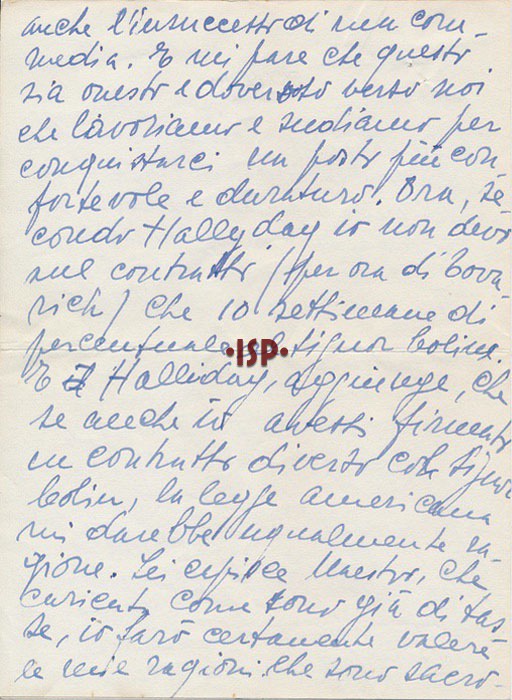 anche l'insuccesso di una com-
media. E mi pare che questo
sia onesto e doveroso verso noi
che lavoriamo e sudiamo per
conquistarci un posto più con
fortevole e duraturo. Ora, se
condo Hallyday io non devo
sul contratto (per ora di Tova
rich) che 10 settimane di
percentuale al signor Colin.
E Halliday, aggiunge, che
se anche io avessi firmato
un contratto diverso col signor
Colin, la legge americana
mi darebbe ugualmente ra
gione. Lei capisce Maestro, che
caricata come sono già di tas
se, io farò certamente valere
le mie ragioni che sono sacro-
·ISP·